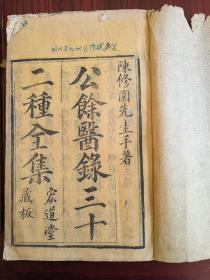 陳修園先生手著
公餘醫錄三十
二種全集
宏道堂
藏板